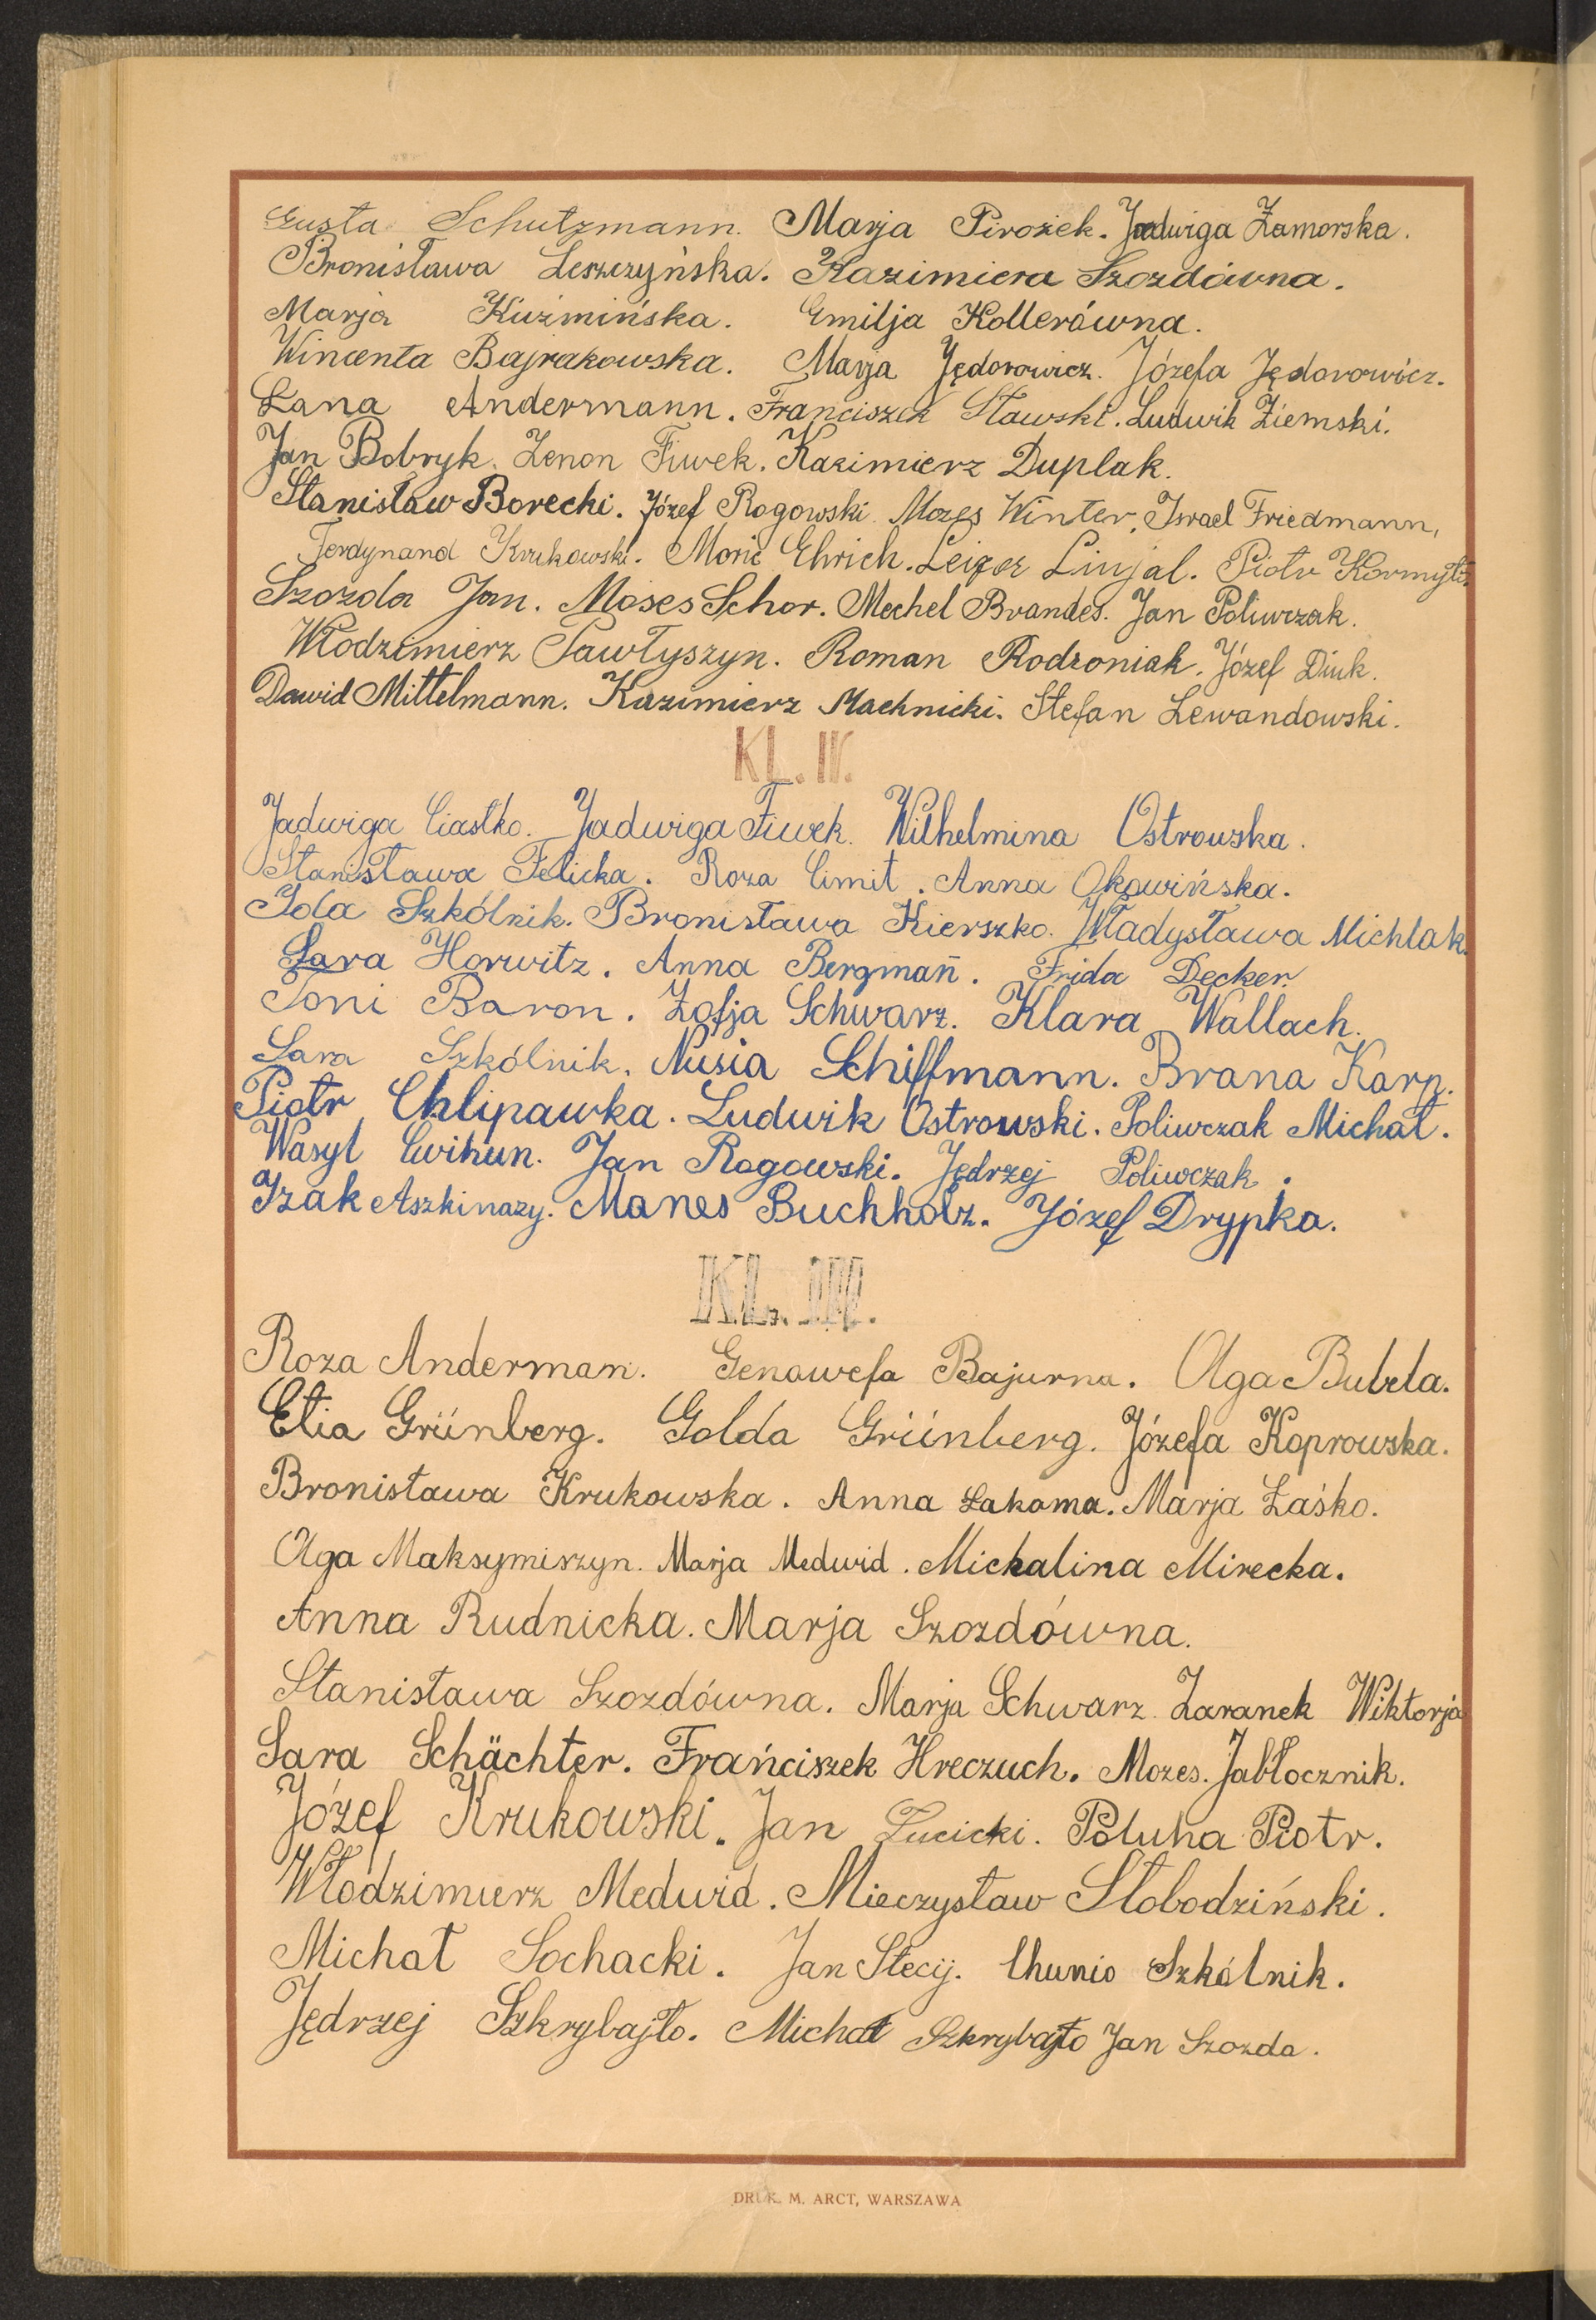 Gusta Schutzmann. Marja Pirożek. Jadwiga Zamorska.
Bronisława Leszczyńska. Kazimiera Szozdówna.
Marja Kuźmińska. Emilja Kollerówna.
Wincenta Bajrakowska. Marja Jędorowicz. Józefa Jędorowicz.
Lana Andermann. Franciszek Sławski. Ludwik Ziemski.
Jan Bobryk. Zenon Fiwek. Kazimierz Duplak.
Stanisław Borecki. Józef Rogowski. Mozes Winter, Israel Friedmann,
Ferdynand Krukowski. Moric Ehrich. Leizer Linjal. Piotr
Szozda Jan. Moses Schor. Mechel Brandes. Jan Poliwczak.
Włodzimierz Pawłyszyn. Roman Rodzoniak. Józef Diuk.
Dawid Mittelmann. Kazimierz Machnicki. Stefan Lewandowski.
KL. IV.
Jadwiga Ciastko. Jadwiga Fiwek. Wilhelmina Ostrowska.
Stanisława Felicka. Roza Cimit. Anna Okowińska.
Ida Szkólnik. Bronisława Kierszko. Władysława Michlak.
Sara Horwitz. Anna Bergmañ. Frida Decker.
Toni Baron. Zofja Schwarz. Klara Wallach.
Sara Szkólnik. Nusia Schiffmann. Brana Karp.
Piotr Chlipawka. Ludwik Ostrowski. Poliwczak Michał.
Wasyl Cwihun. Jan Rogowski. Jędrzej Poliwczak.
Izak Aszkinazy. Manes Buchholz. Józef Drypka.
KL. III.
Roza Anderman. Genowefa Bajurna. Olga Bubela.
Etia Grünberg. Golda Grünberg. Józefa Koprowska.
Bronisława Krukowska. Anna Łakoma. Marja Łaśko.
Olga Maksymiszyn. Marja Medwid. Michalina Mirecka.
Anna Rudnicka. Marja Szozdówna.
Stanisława Szozdówna. Marja Schwarz. Zaranek Wiktorja
Sara Schächter. Frańciszek Hreczuch. Mozes. Jabłocznik.
Józef Krukowski. Jan Łucicki. Połuha Piotr.
Włodzimierz Medwid. Mieczysław Słobodziński.
Michał Sochacki. Jan Stecij. Chunio Szkólnik.
Jędrzej Szkrybajło. Michał Szkrybajło Jan Szozda.
DRUK. M. ARCT, WARSZAWA